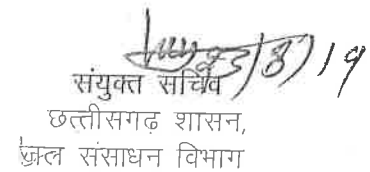 23/8/19
संयुक्त सचिव
छत्तीसगढ़ शासन,
जल संसाधन विभाग